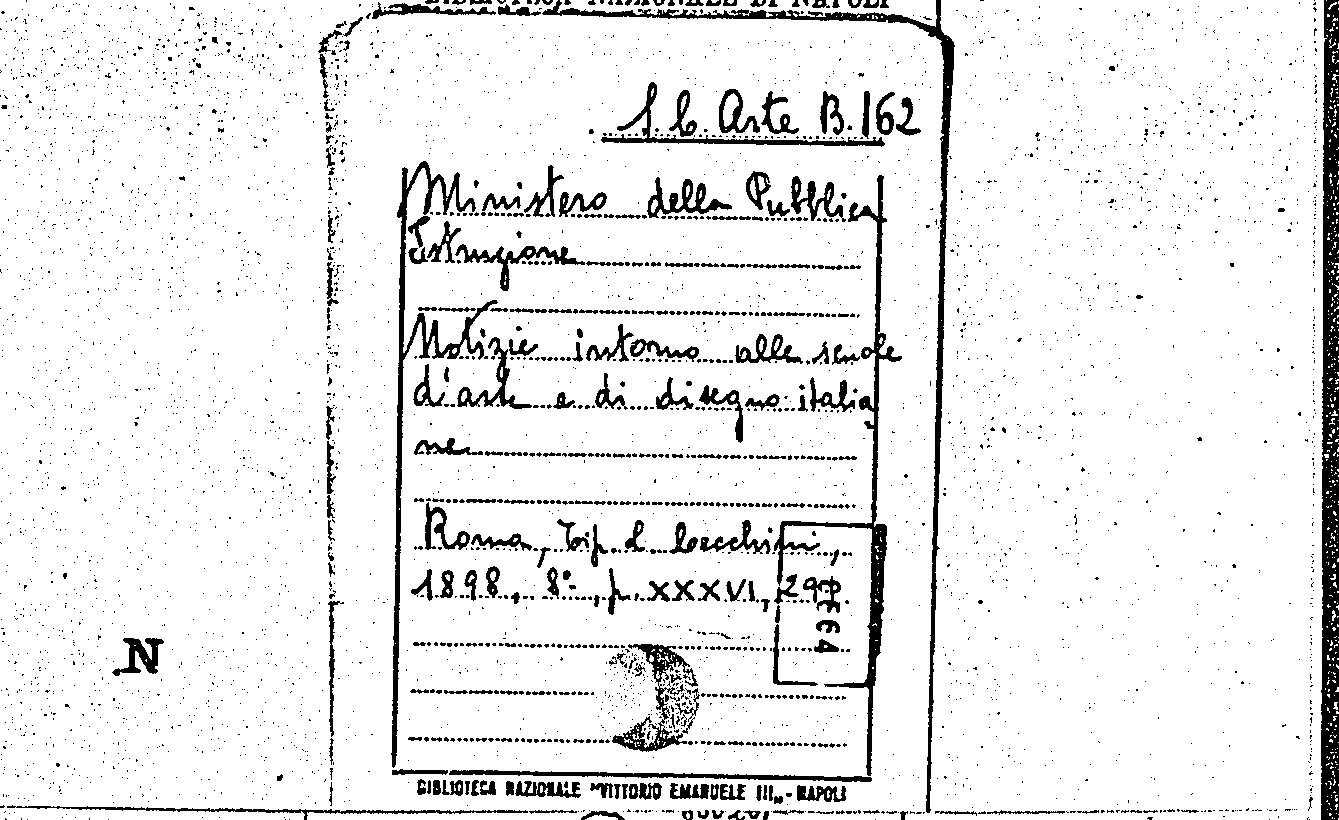 BIBLIOTECA NAZIONALE DI NAPOLI
S.C. Arte B.162
Ministero della Pubblica
Istruzione
Notizie intorno alle scuole
d'arte e di disegno italia
ne
Roma, Tip. L. Cecchini,
1898, 8°, p. XXXVI, 29
N
BIBLIOTECA NAZIONALE "VITTORIO EMANUELE III„ - NAPOLI